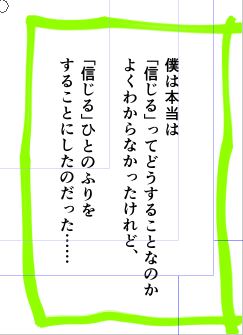 僕は本当は
「信じる」ってどうすることなのか
よくわからなかったけれど、
「信じる」ひとのふりを
することにしたのだった……